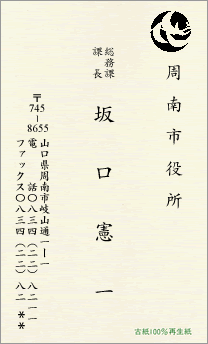 周南市役所
総務課
課長
坂口憲一
〒745-8655
山口県周南市岐山通一ー一
電話〇八三四(二二)八二一一
ファックス〇八三四(二二)八二**
古紙100%再生紙